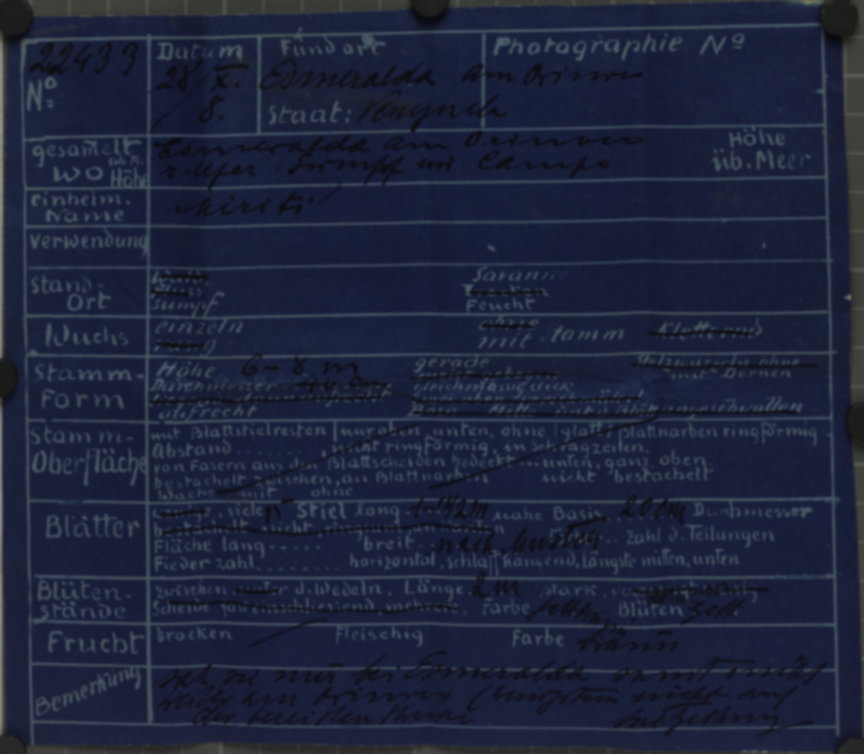 22433 Datum Fundort Photographie Nº
28/X. Esmeralda am Orinoco
Nº 8. Staat:
gesamelt Esmeralda am Orinoco Höhe
wo Höhe r. Ufer - Sumpf im Campo üb. Meer
einheim. Name Miriti
Verwendung
Stand- Wald Savanne
Ort Fluss
Sumpf Feucht
Wuchs einzeln ohne
mit stamm Kletternd
Stamm- Höhe 6-8 m gerade Stelzwurzeln ohne
Form Durchmesser gleichmässig dick mit Dornen
aufrecht Basis, Mitte angeschwollen
Stamm- mit Blattstielresten nur oben, unten, ohne (glatt) Blattnarben ringförmig
Oberfläche Abstand........ nicht ringförmig, in Schrägzeilen.
von Fasern aus den Blattscheiden bedeckt... unten, ganz oben
bestachelt zwischen, an Blattnarben nicht bestachelt
Wachs mit ohne
Blätter viele 15 Stiel lang 1-1 1/2 m nahe Basis 20 cm Durchmesser
bestachelt nicht
Fläche lang..... breit.. nach Muster.. Zahl d. Teilungen
Fiederzahl........ horizontal, schlaff hängend, längste mitten, unten
Blüten- zwischen unter d. Wedeln, Länge 2 m stark, verzweigt wenig
stände Scheide Farbe Blüten gelb.
Frucht trocken Fleischig Farbe braun
Bemerkung sah sie nur bei Esmeralda sonst nicht
weiter am Orinoco nicht auf
der bereisten Strecke